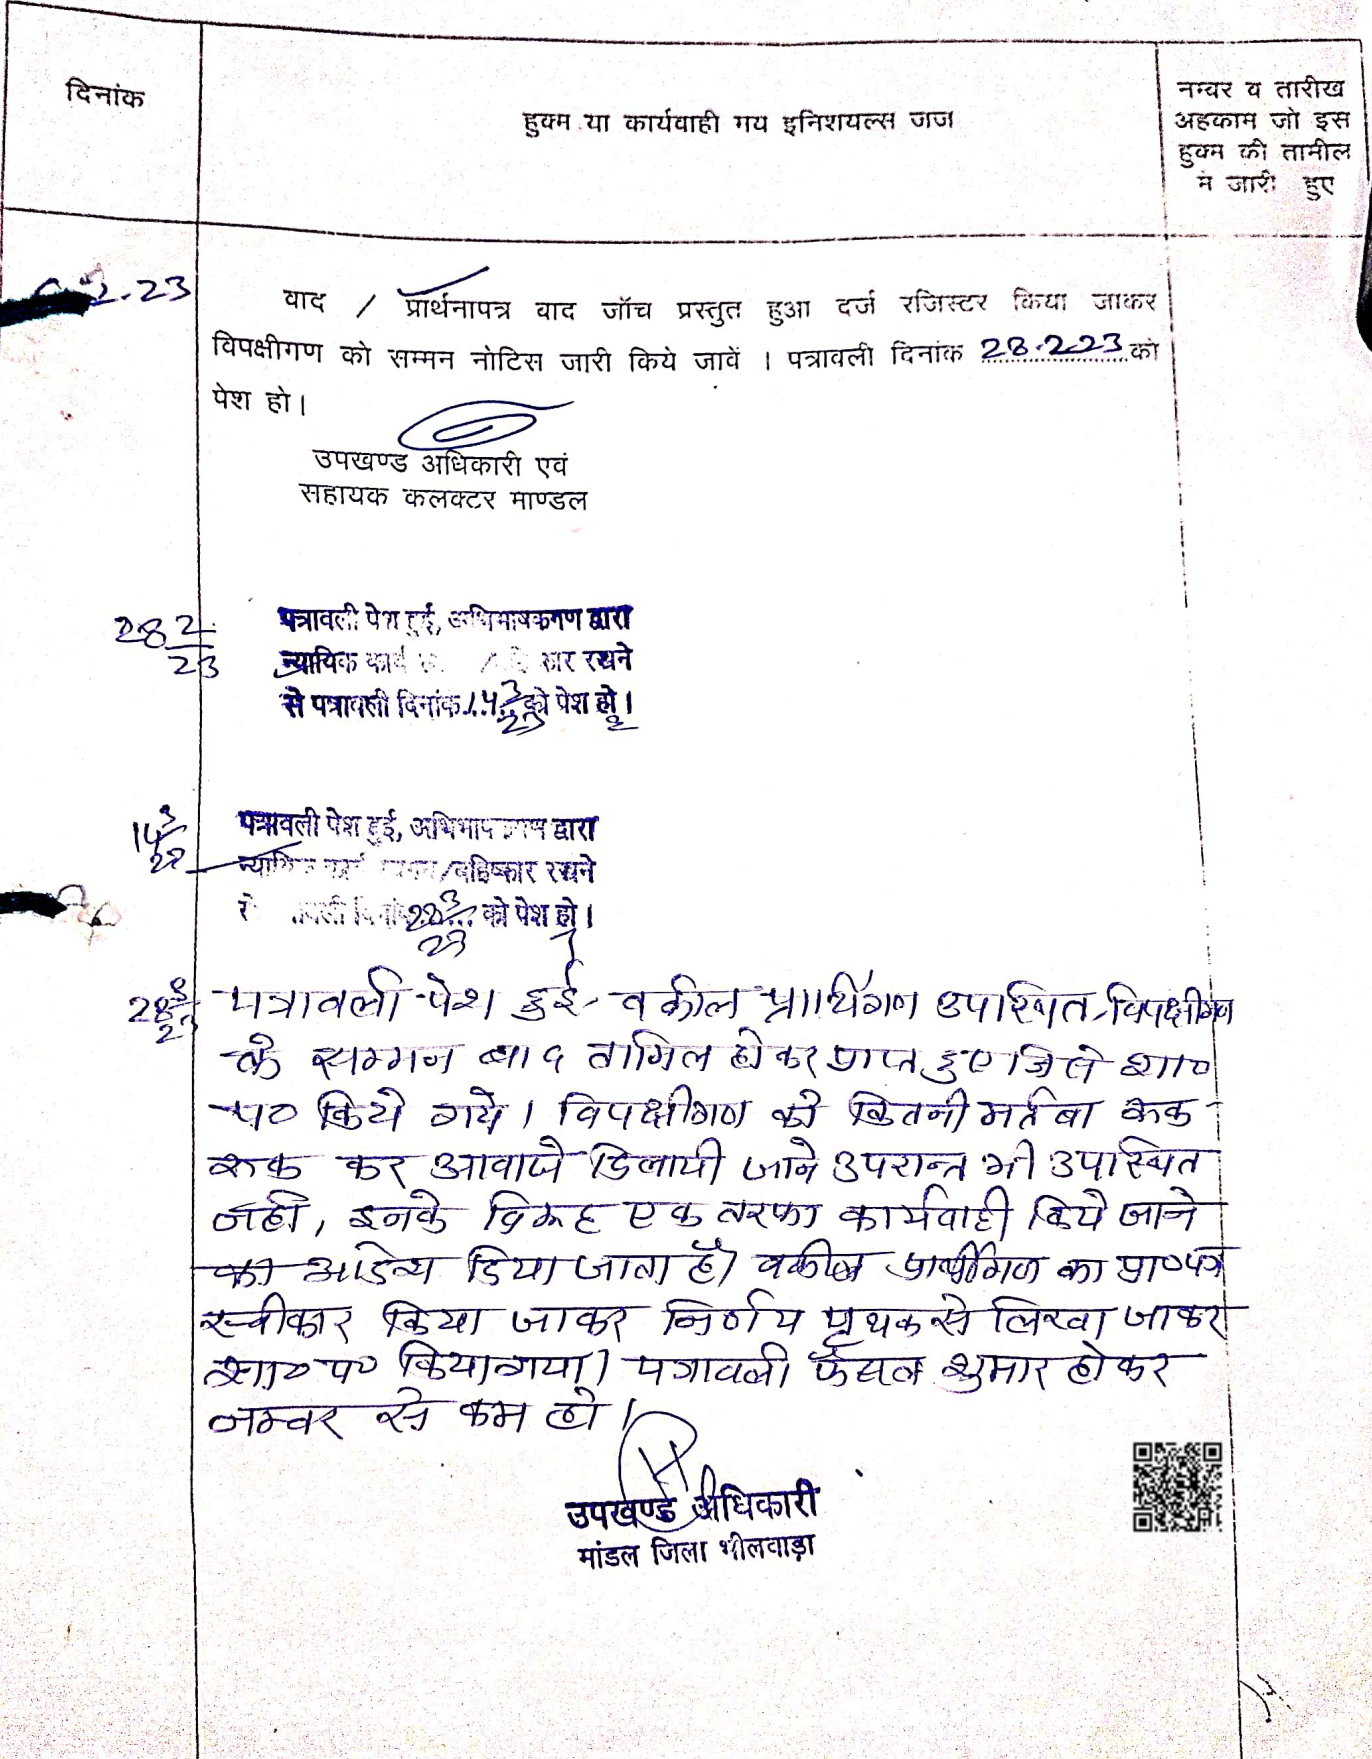 दिनांक
हुक्म या कार्यवाही मय इनिशयल्स जज
नम्बर व तारीख
अहकाम जो इस
हुक्म की तामील
में जारी हुए
2.23
वाद / प्रार्थनापत्र वाद जॉच प्रस्तुत हुआ दर्ज रजिस्टर किया जाकर
विपक्षीगण को सम्मन नोटिस जारी किये जावें । पत्रावली दिनांक 28.2.23 को
पेश हो।
उपखण्ड अधिकारी एवं
सहायक कलक्टर माण्डल
28 2/23
पत्रावली पेश हुई, अभिभाषकगण द्वारा
न्यायिक कार्य रखने
से पत्रावली दिनांक 14 3/23 को पेश हो।
14 3/23
पत्रावली पेश हुई, अभिभाषकगण द्वारा
न्यायिक कार्य स्थगन/बहिष्कार रखने
से पत्रावली दिनांक 28 3/23 को पेश हो।
28 3/23
पत्रावली पेश हुई, वकील प्रार्थिगण उपस्थित, विपक्षीगण
के सम्मन बाद तामिल होकर प्राप्त हुए जिसे शा०
प० किये गये। विपक्षीगण को कितनी मर्तबा रूक
रूक कर आवाजे दिलायी जाने उपरान्त भी उपस्थित
नहीं, इनके विरूद्ध एक तरफा कार्यवाही किये जाने
का आदेश दिया जाता है। वकील प्रार्थीगण का प्रा०पत्र
स्वीकार किया जाकर निर्णय पृथक से लिखा जाकर
शा० प० किया गया। पत्रावली फैसल शुमार होकर
नम्बर से कम हो।
उपखण्ड अधिकारी
मांडल जिला भीलवाड़ा